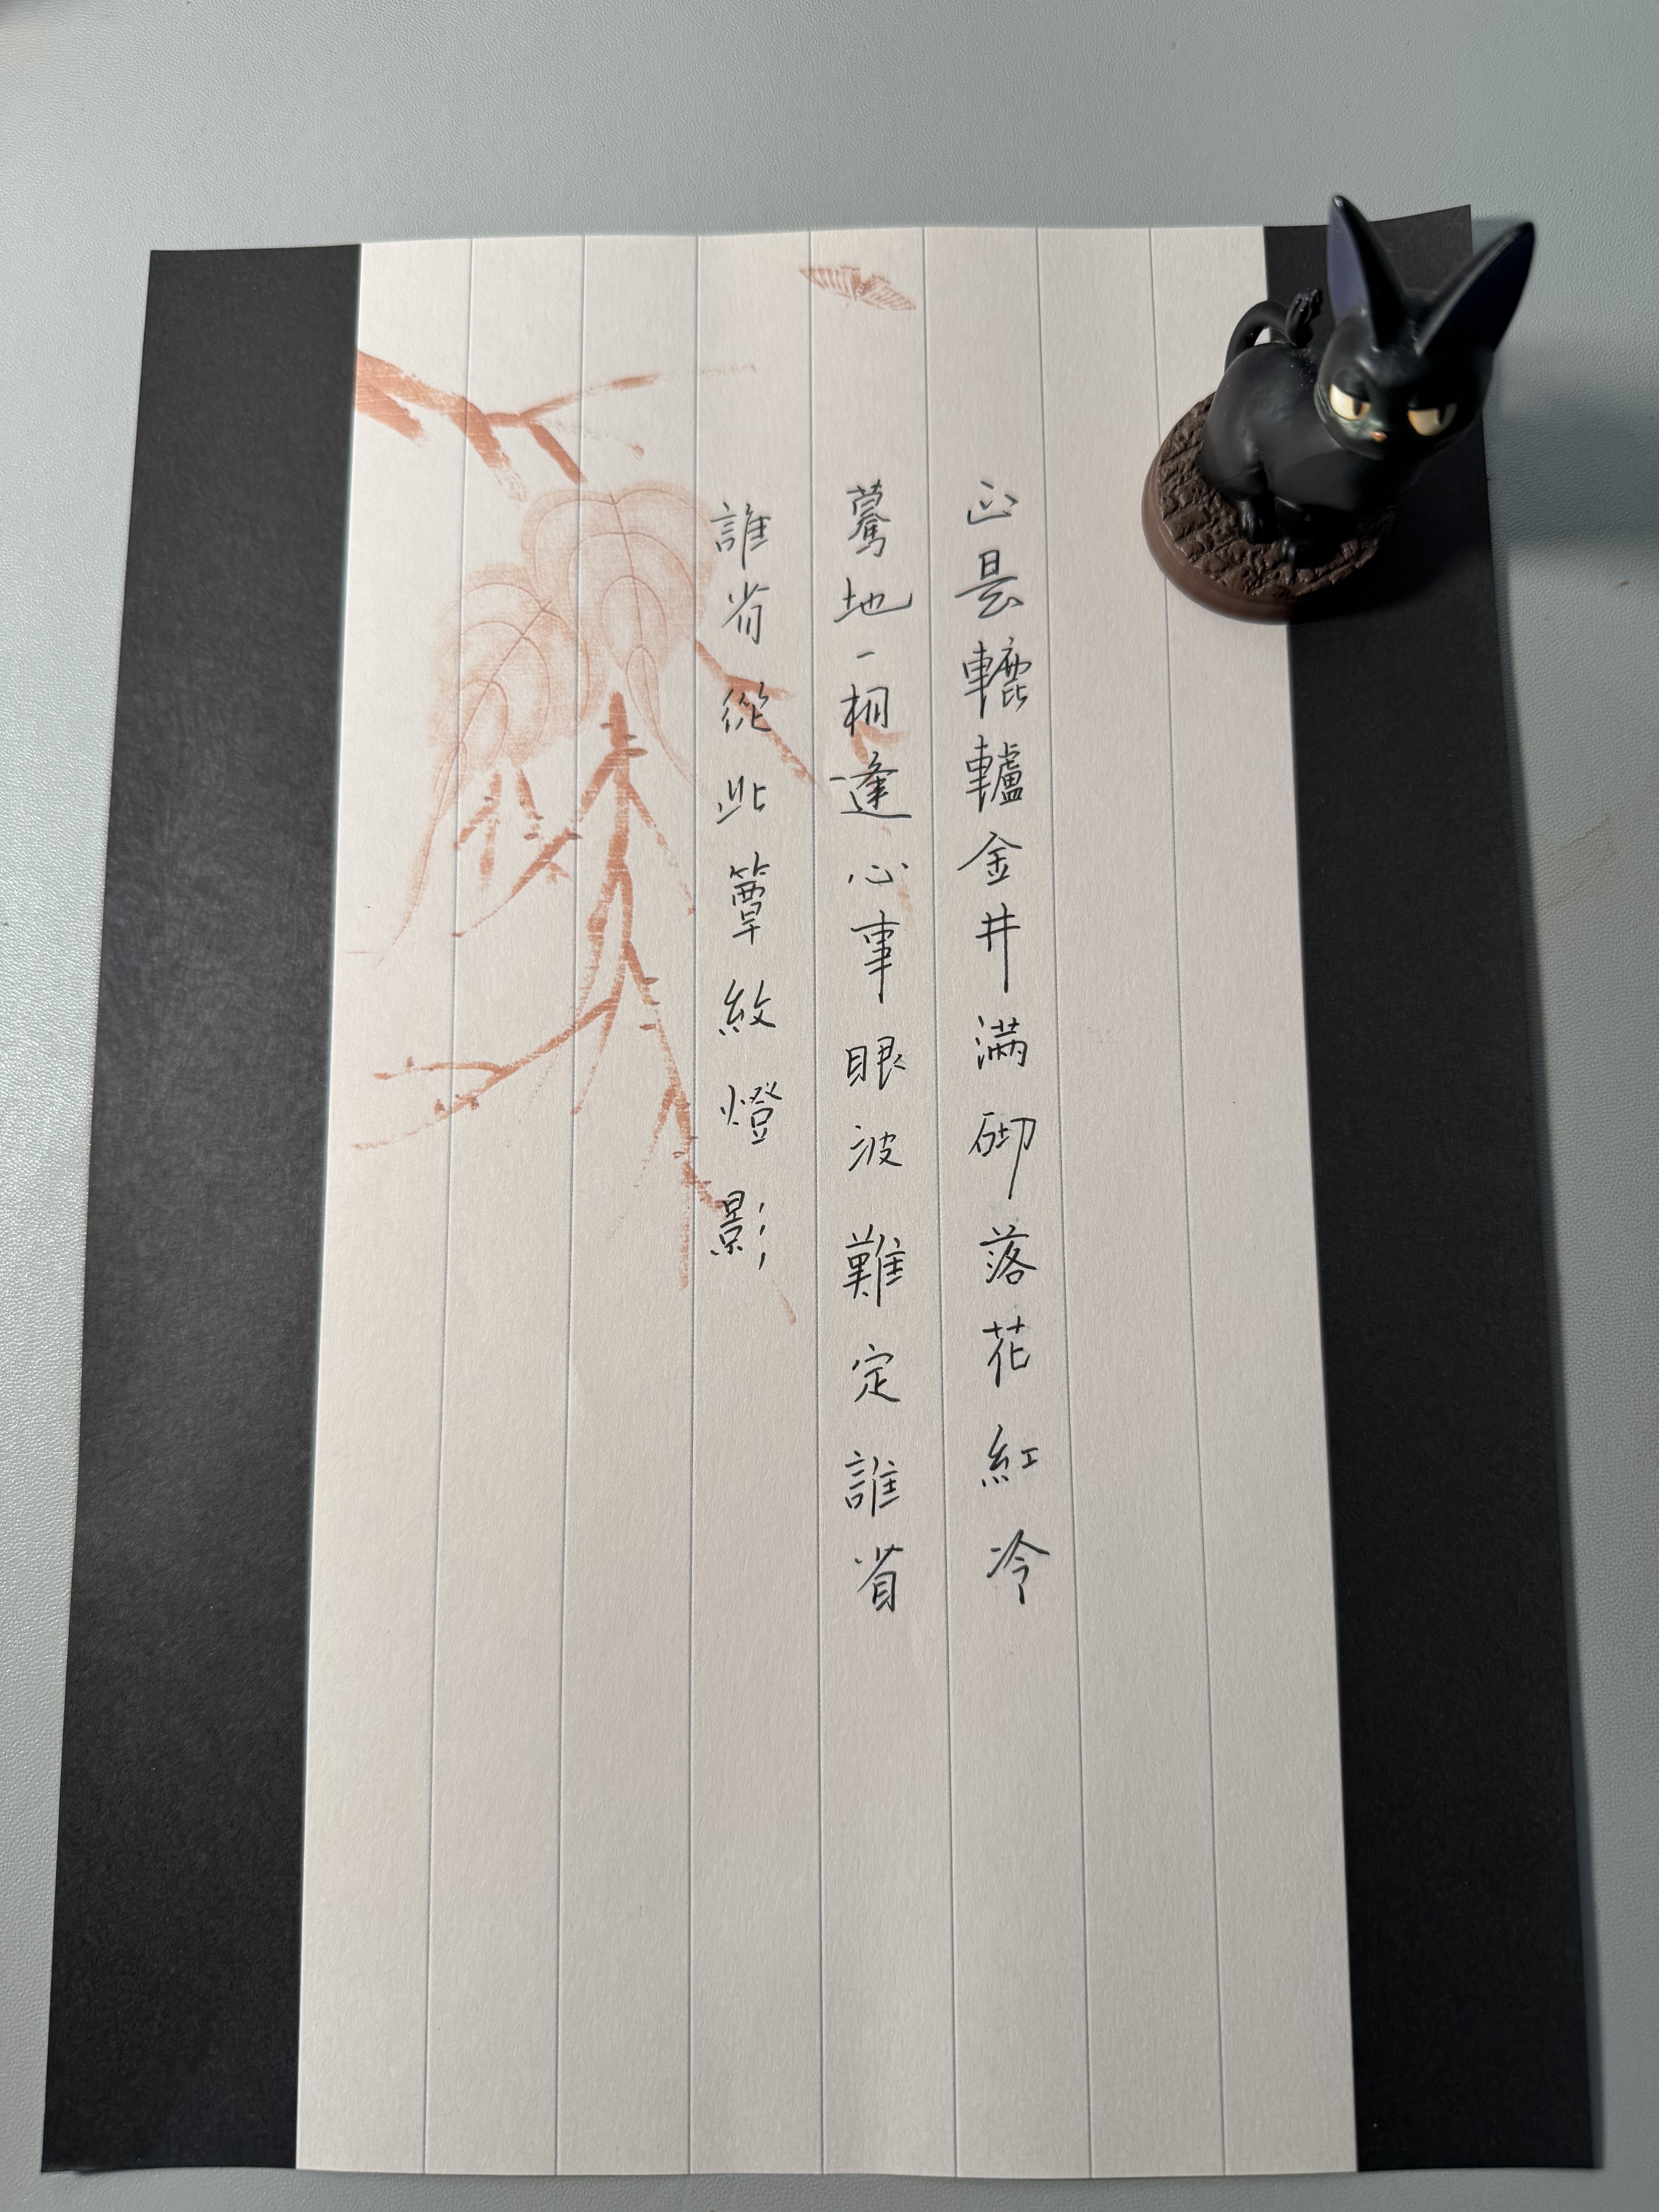 正是轆轤金井滿砌落花紅冷
驀地一相逢心事眼波難定誰省
誰省從此簟紋燈影